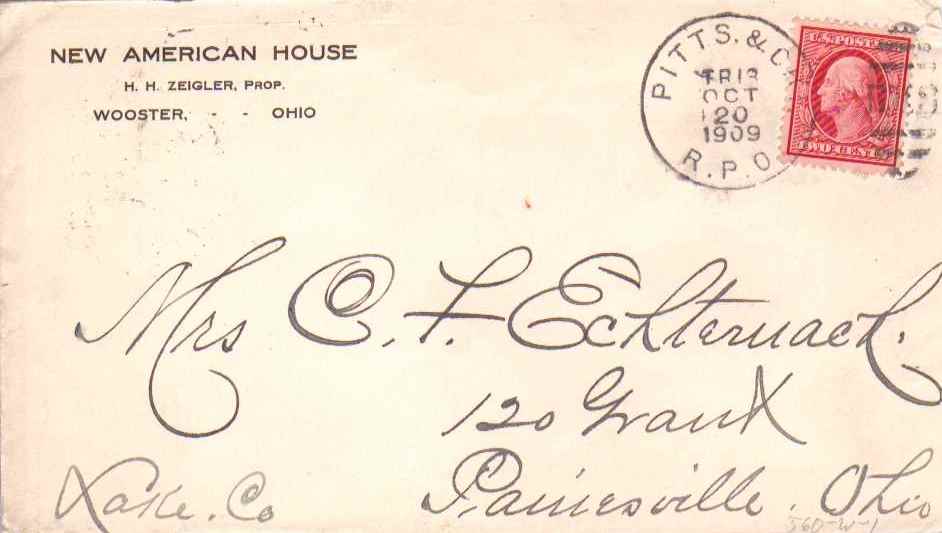 NEW AMERICAN HOUSE
H. H. ZEIGLER, PROP.
WOOSTER, - - OHIO
PITTS. & C
TR 13
OCT
20
1909
R.P.O.
U.S. POST
Mrs C. F. Echternach.
120 Grant
Painesville. Ohio
Lake. Co
560-W-1